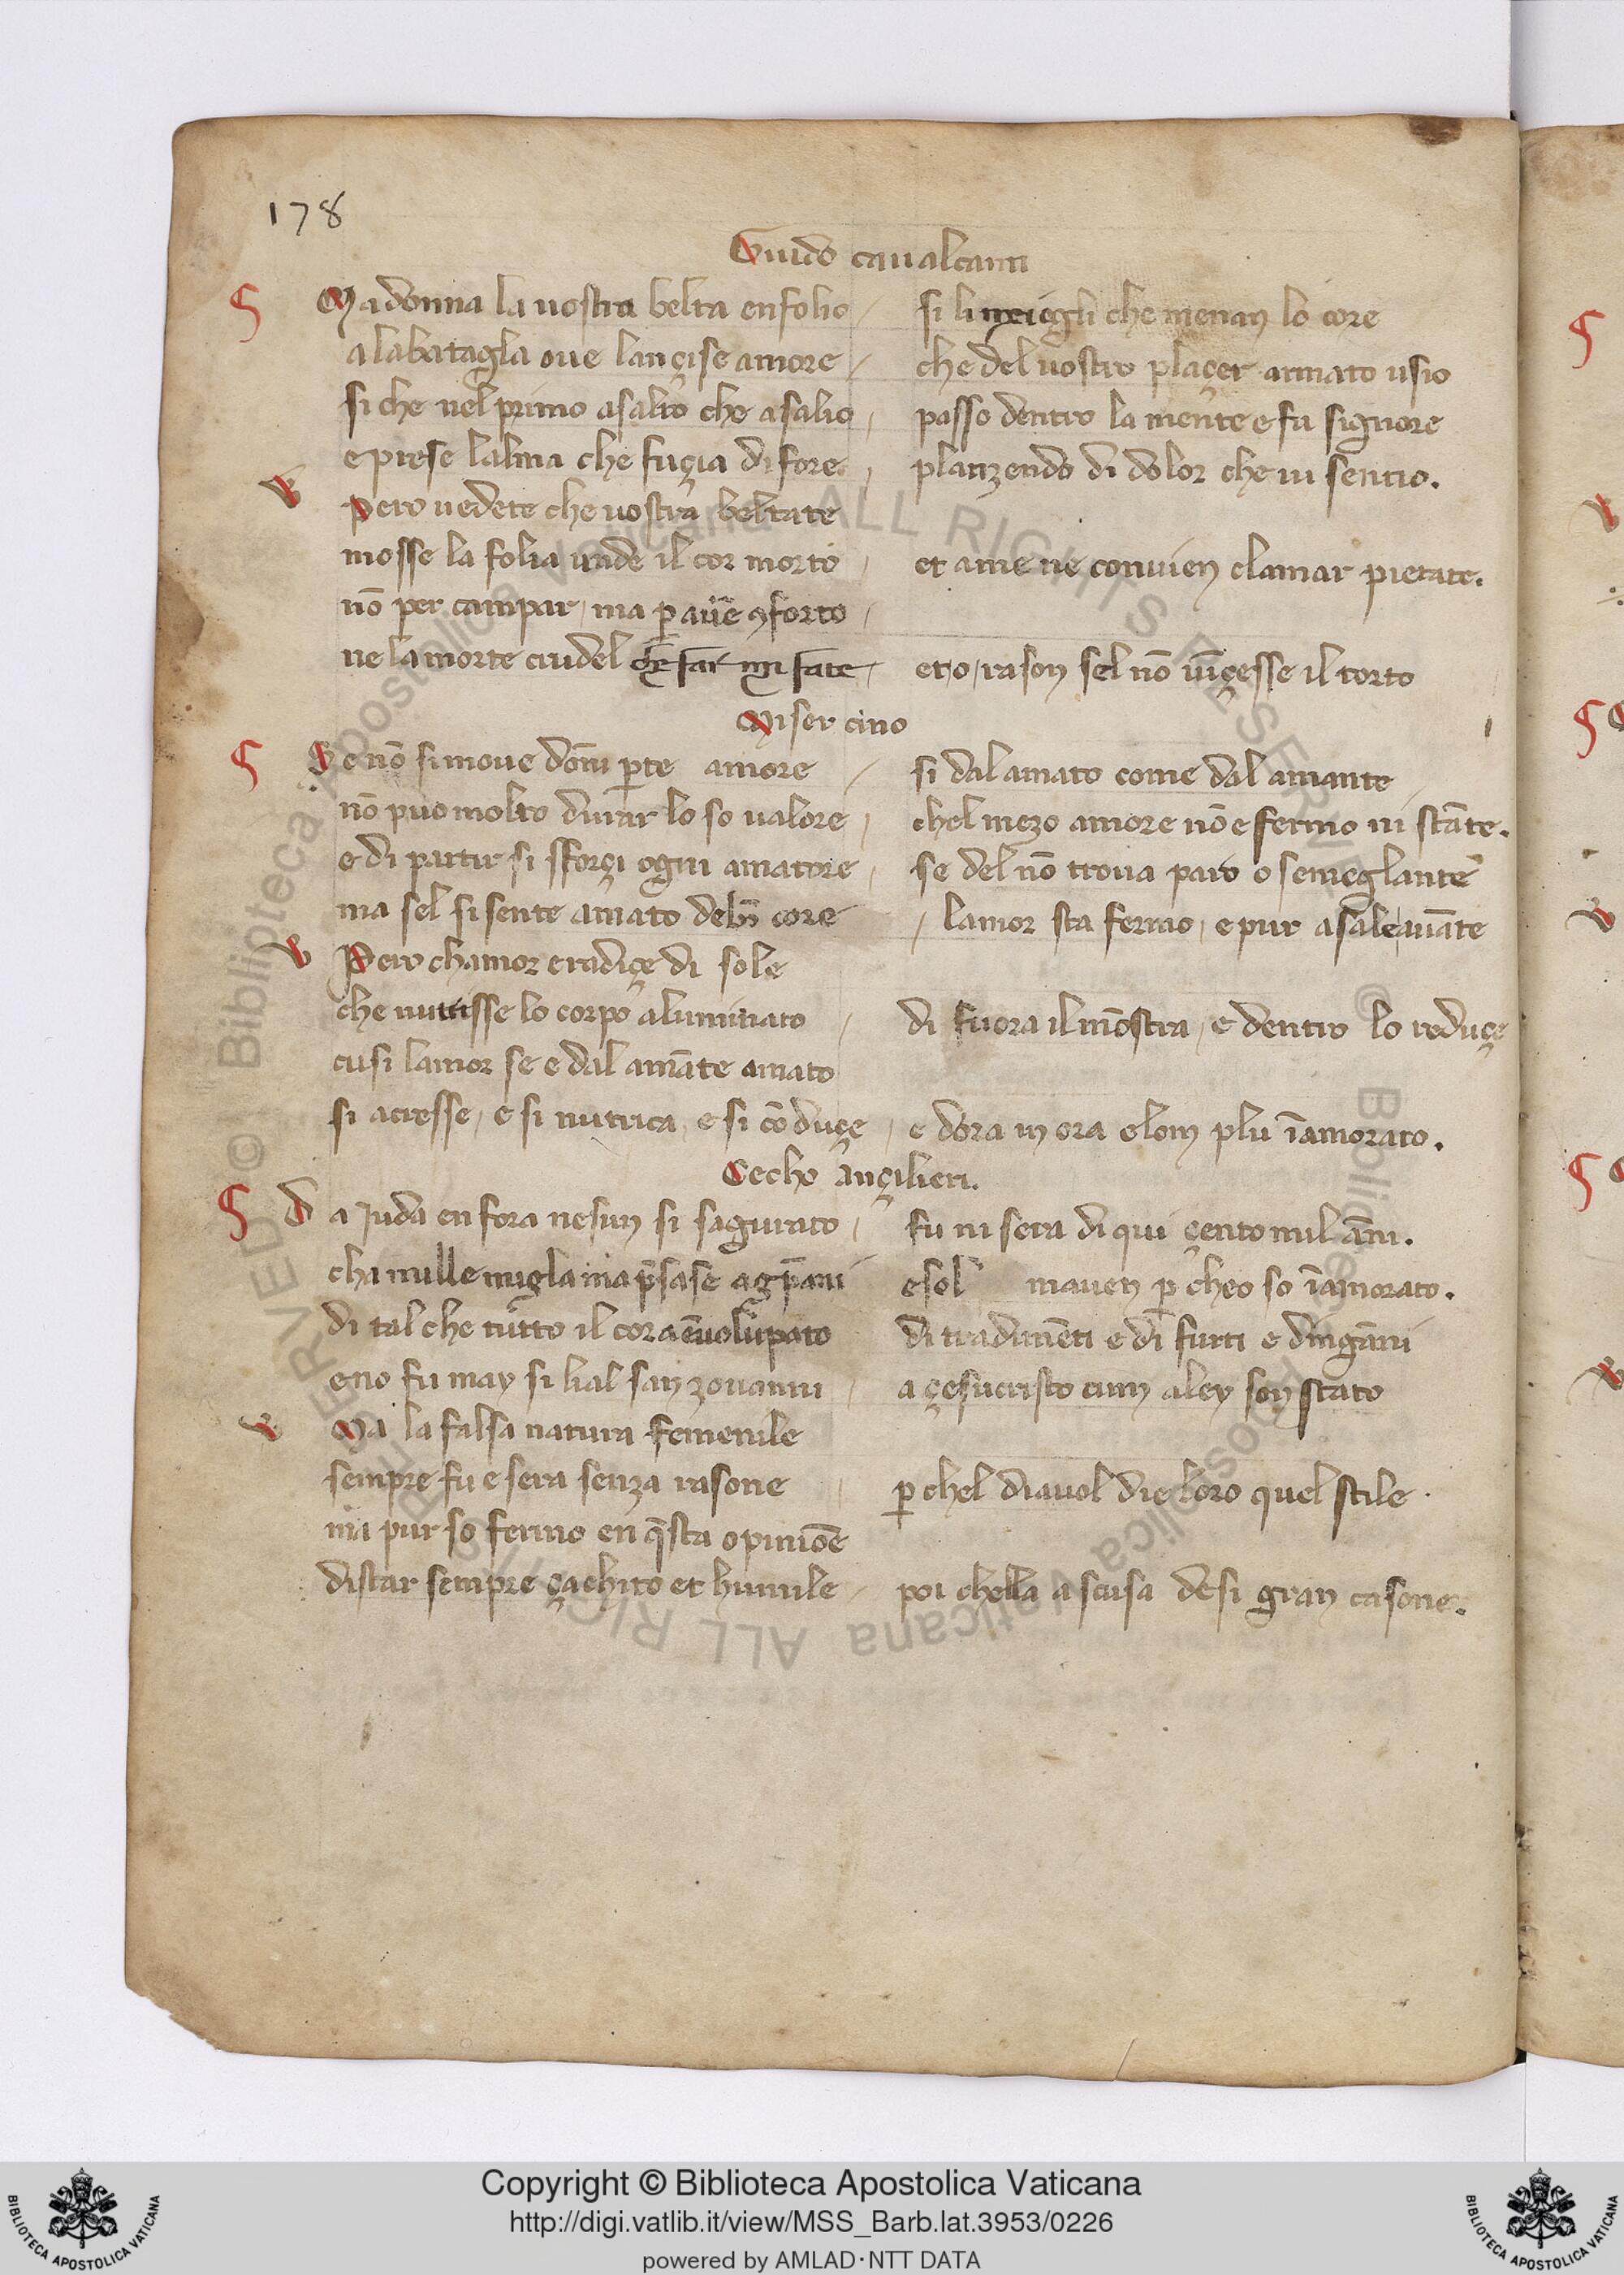 178
Guido caualcanti
¶ Madonna la uostra belta enfolio / si li mei ogli che menan lo core
alabatagla oue lançise amore / che del uostro plaçer armato usio
si che nel primo asalto che asalio / passo dentro la mente e fu signore
e prese lalma che fuçia di fore / planzendo di dolor che ui sentio.
V Pero uedete che uostra beltate
mosse la folia unde il cor morto / et ame ne conuien clamar pietate.
nō per campar / ma ꝑ auē ꝯforto /
ne la morte crudel che far mi fate / et o / rason sel nō uīçesse il torto
Miser cino
¶ Se nō si moue dōni ꝑte amore / si dal amato come dal amante
nō puo molto durar lo so ualore / chel mezo amore nō e fermo ni stāte.
e di partir si sforçi ogni amatore / se del nō troua paro o semeglante
ma sel si sente amato de bō core / lamor sta fermo / e pur asale auāte
V Pero chamor e radiçe di sole
che nutrisse lo corpo aluminato / di fuora il mōstra / e dentro lo reduçe
cusi lamor se e dal amāte amato
si acresse / e si nutrica / e si cōduçe / e dora in ora elom plu īamorato.
Cecho ançilieri.
¶ Da Juda en fora nesun si sagurato / fu ni sera di qui çento mil āni.
cha mille migla ma p̄sase agp̄ani esol mauen ꝑ cheo so īamorato.
di tal che tutto il cor a ēuolupato di tradimēti e di furti e dingāni
e no fu may si lial san zouanni / a çesucristo cum aley son stato
V Ma la falsa natura femenile
sempre fu e sera senza rasone / ꝑ chel diauol die loro quel stile.
ma pur so fermo en q̄sta opiniōe
di star sempre çachito et humile / poi chella a scusa de si gran casone.
Copyright © Biblioteca Apostolica Vaticana
http://digi.vatlib.it/view/MSS_Barb.lat.3953/0226
powered by AMLAD·NTT DATA
BIBLIOTECA APOSTOLICA VATICANA
BIBLIOTECA APOSTOLICA VATICANA